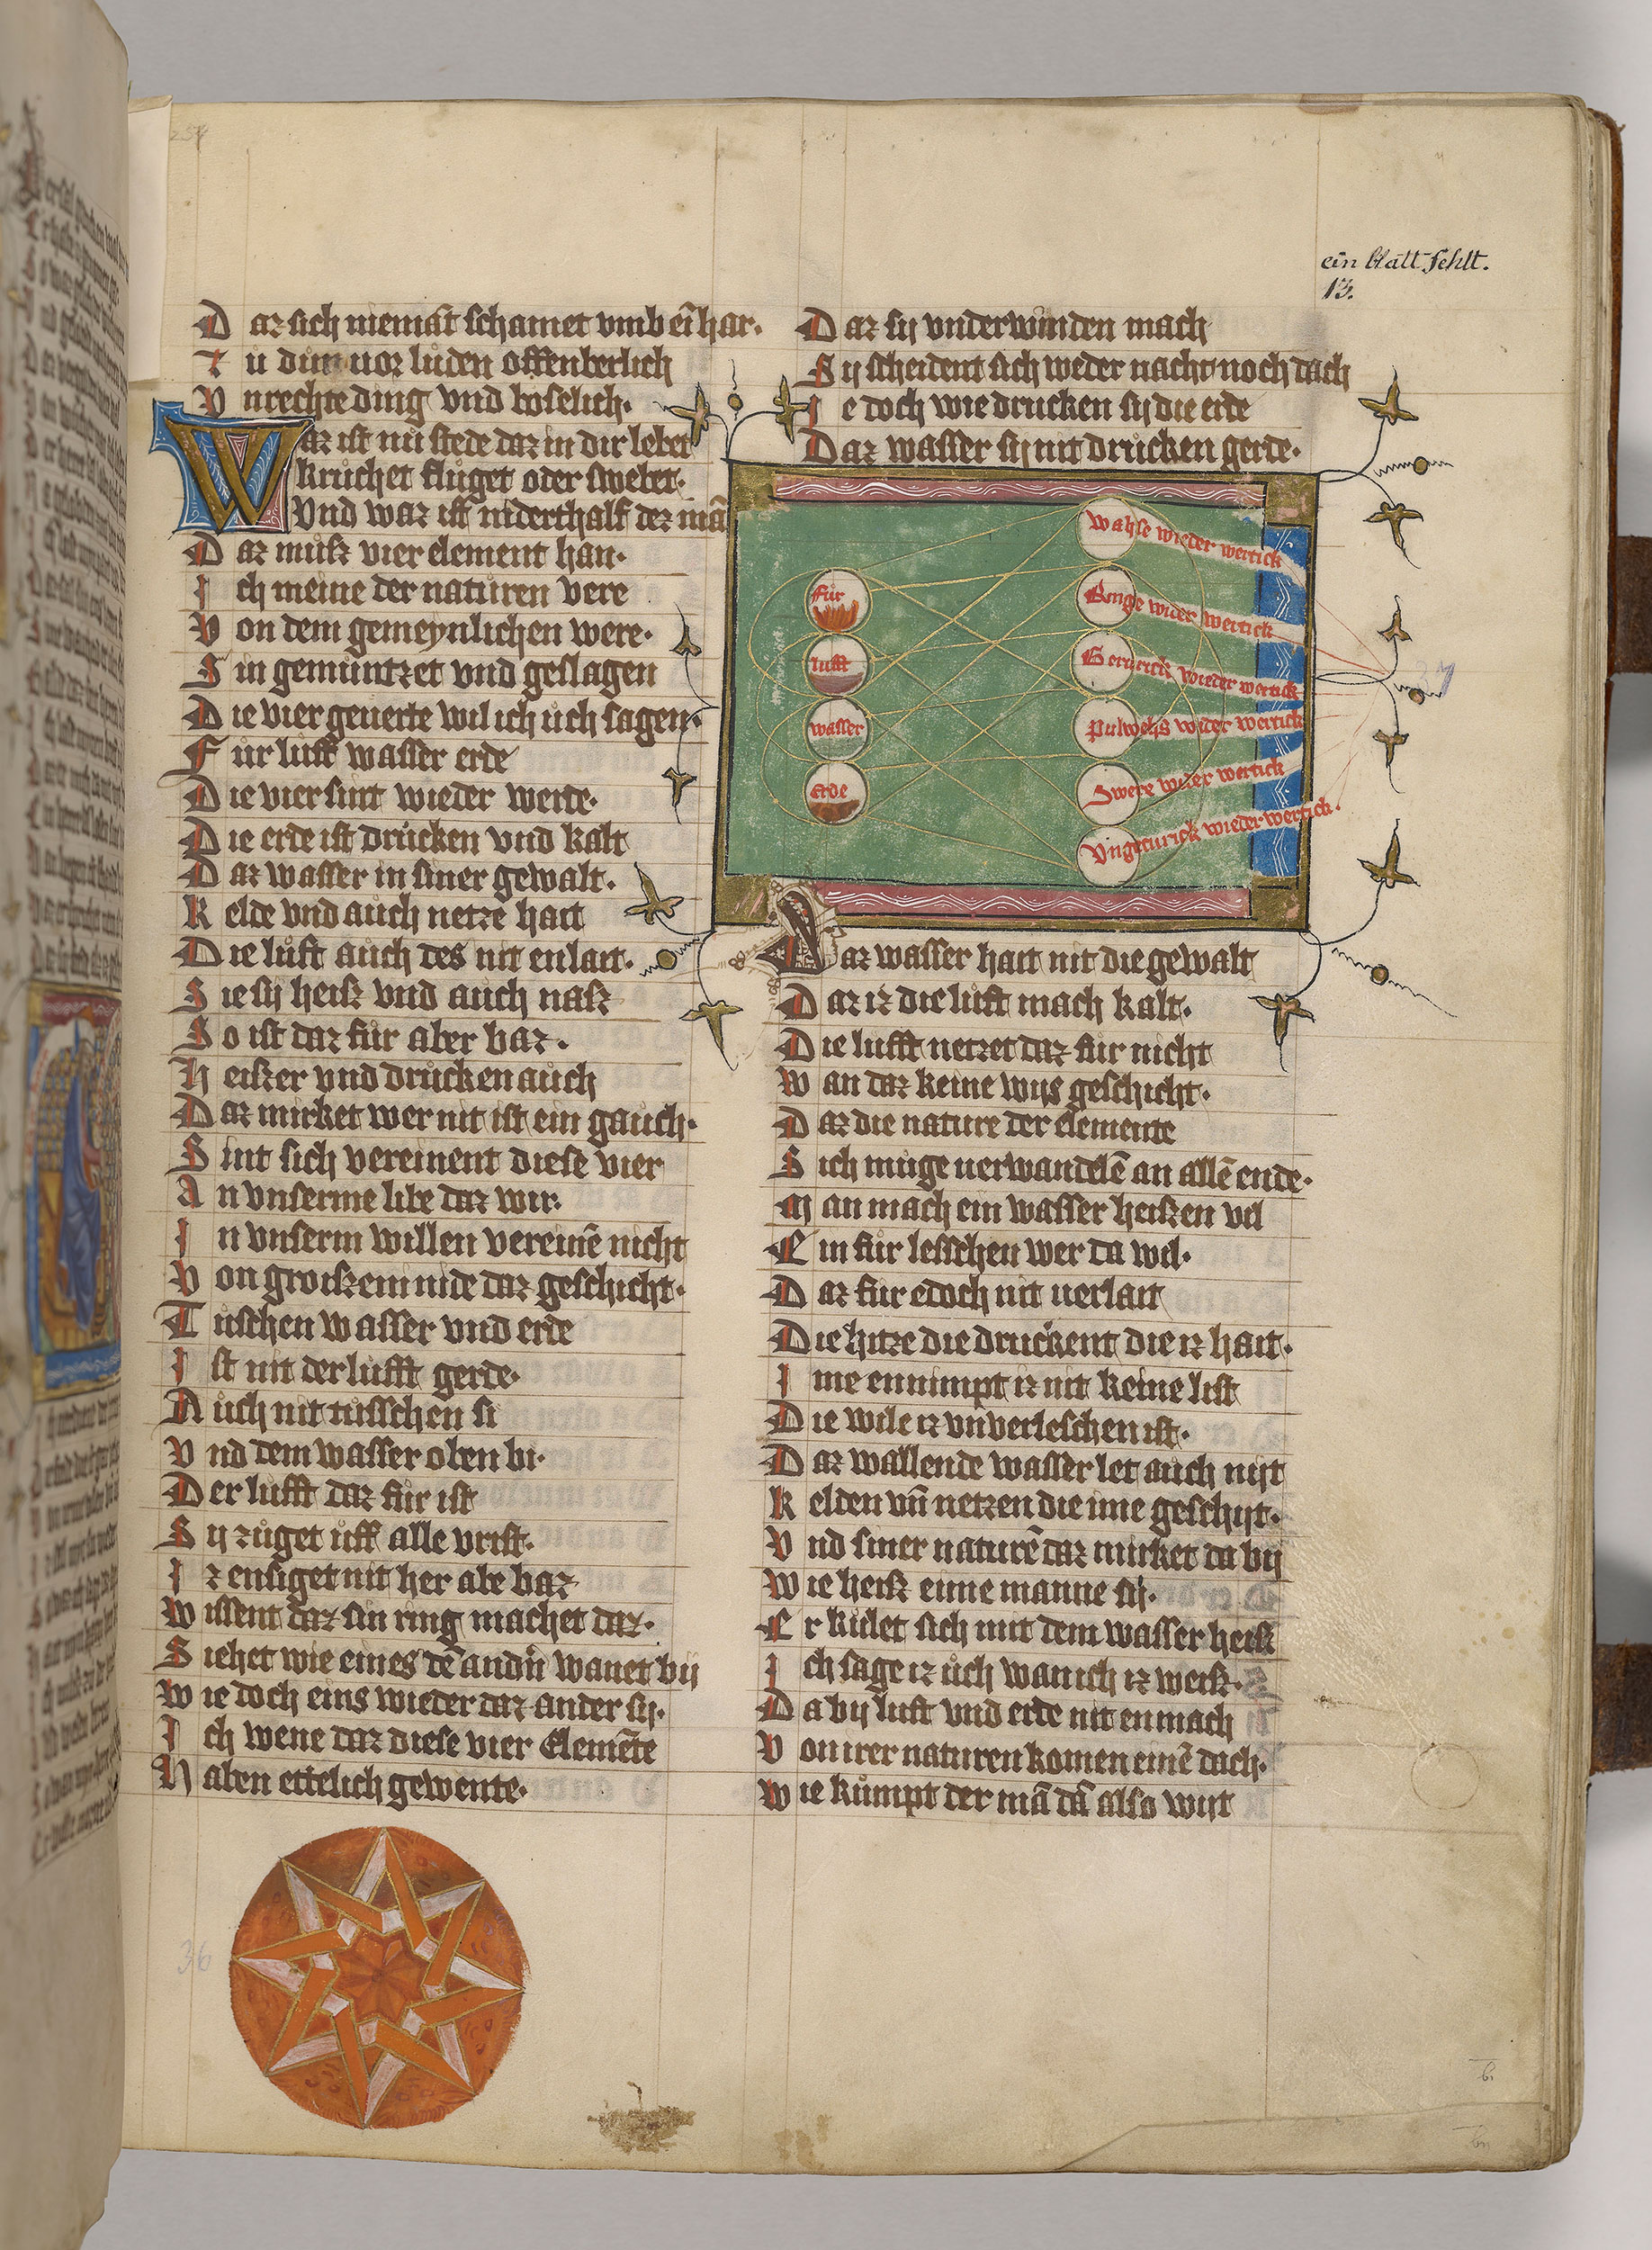 ein blatt fehlt.
13.
Daz sich niemāt schamet vmb eī har.
Tu dun uor luden offenberlich
Vnrechte ding vnd boselich.
Waz ist nů stede daz in dir lebet
kruchet fluget oder swebet.
Vnd waz ist niderthalf dez mā
Daz muſz vier element han.
Ich meine der naturen vere
Von dem gemeynlichen were.
Sin gemuntzet vnd geslagen
Die vier geuerte wil ich uch sagen.
Fur lufft wasser erde
Die vier sint wieder werde.
Die erde ist drucken vnd kalt
Daz wasser in siner gewalt.
Kelde vnd auch netze hait
Die luft auch des nit enlait.
Sie sij heisz vnd auch nasz
So ist daz fur aber baz.
Heiszer vnd drucken auch
Daz mirket wer nit ist ein gauch.
Sint sich vereinent diese vier
An vnserme libe daz wir.
In vnserm willen vereinē nicht
Von groiszem nide daz geschicht.
Tuschen wasser vnd erde
Ist nit der lufft gerde.
Auch nit tusschen si
Vnd dem wasser oben bi.
Der lufft daz fur ist
Sij zuget uff alle vrist.
Iz ensiget nit her abe baz
Wissent daz sin ring machet daz.
Siehet wie eines dē andn̄ wanet bij
Wie doch eins wieder daz ander sij.
Ich wene daz diese vier Elemēte
Haben ettelich gewente.
Daz sij vnderwinden mach
Sij scheident sich weder nacht noch dach
Ie doch wie drucken sij die erde
Daz wasser sij nit drucken gerde.
fur
lufft
wasser
erde
Wahse wieder wertick
Ringe wider wertick
Gerurick wieder wertick
Pulwehs wider wertick
Swere wider wertick
Vngerurick wieder wertick.
Daz wasser hait nit die gewalt
Daz iz die luft mach kalt.
Die lufft netzet daz fur nicht
Wan daz keine wijs geschicht.
Daz die nature der elemente
Sich muge uerwandelē an allē ende.
Man mach ein wasser heiszen vil
Ein fur lesschen wer da wil.
Daz fur edoch nit uerlait
Die hitze die druckent die iz hait.
Ime ennimpt iz nit keine list
Die wile iz vnverleschen ist.
Daz wallende wasser let auch nijt
Kelden vn̄ netzen die ime geschijt.
Vnd siner naturē daz mirket da bij
Wie heisz eime manne sij.
Er kulet sich mit dem wasser heisz
Ich sage iz uch wan ich iz weisz.
Da bij luft vnd erde nit enmach
Von irer naturen komen einē dach.
Wie kumpt der mā dā also wijt
36